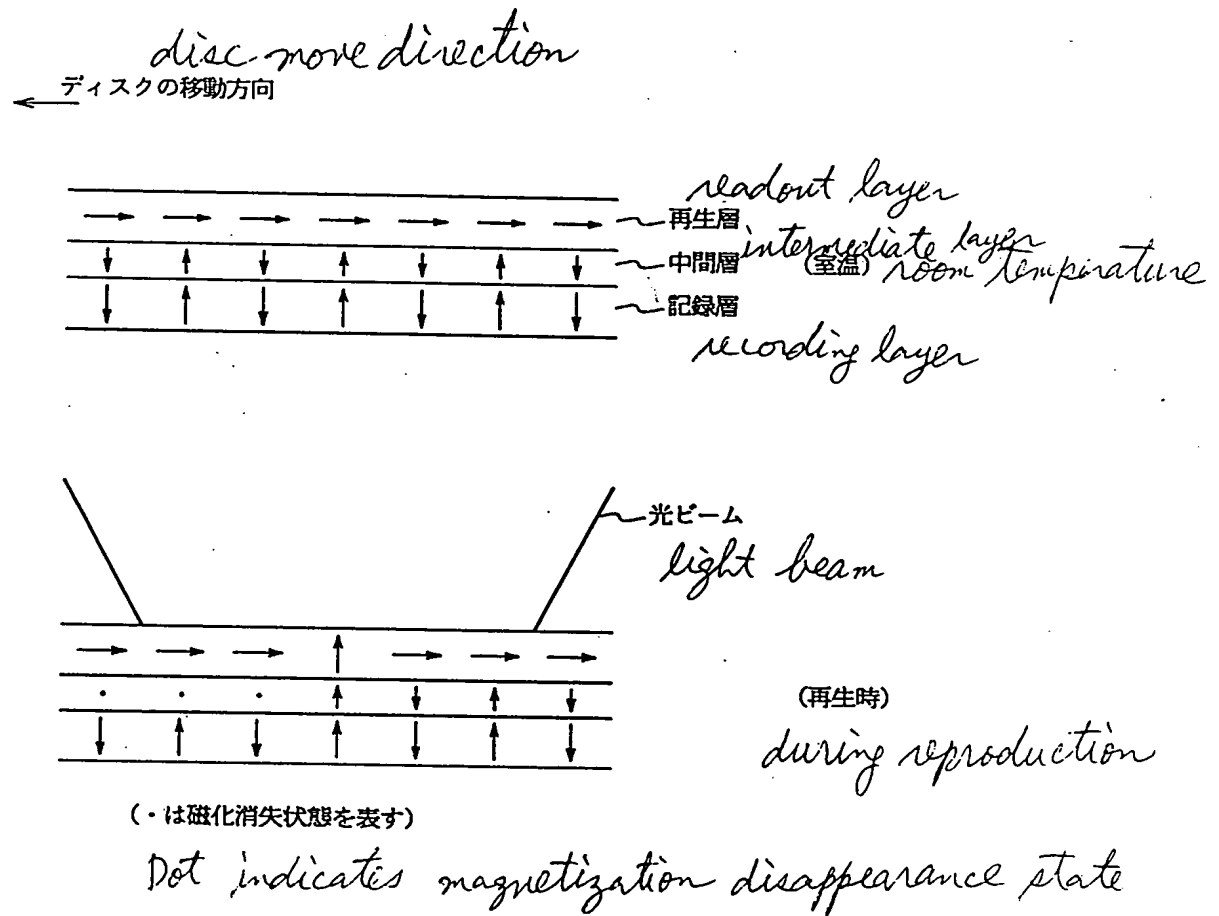 disc move direction
ディスクの移動方向
readout layer
再生層
intermediate layer
中間層 (室温) room tempirature
記録層
recording layer
光ビーム
light beam
(再生時)
during reproduction
(・は磁化消失状態を表す)
Dot indicates magnetization disappearance state